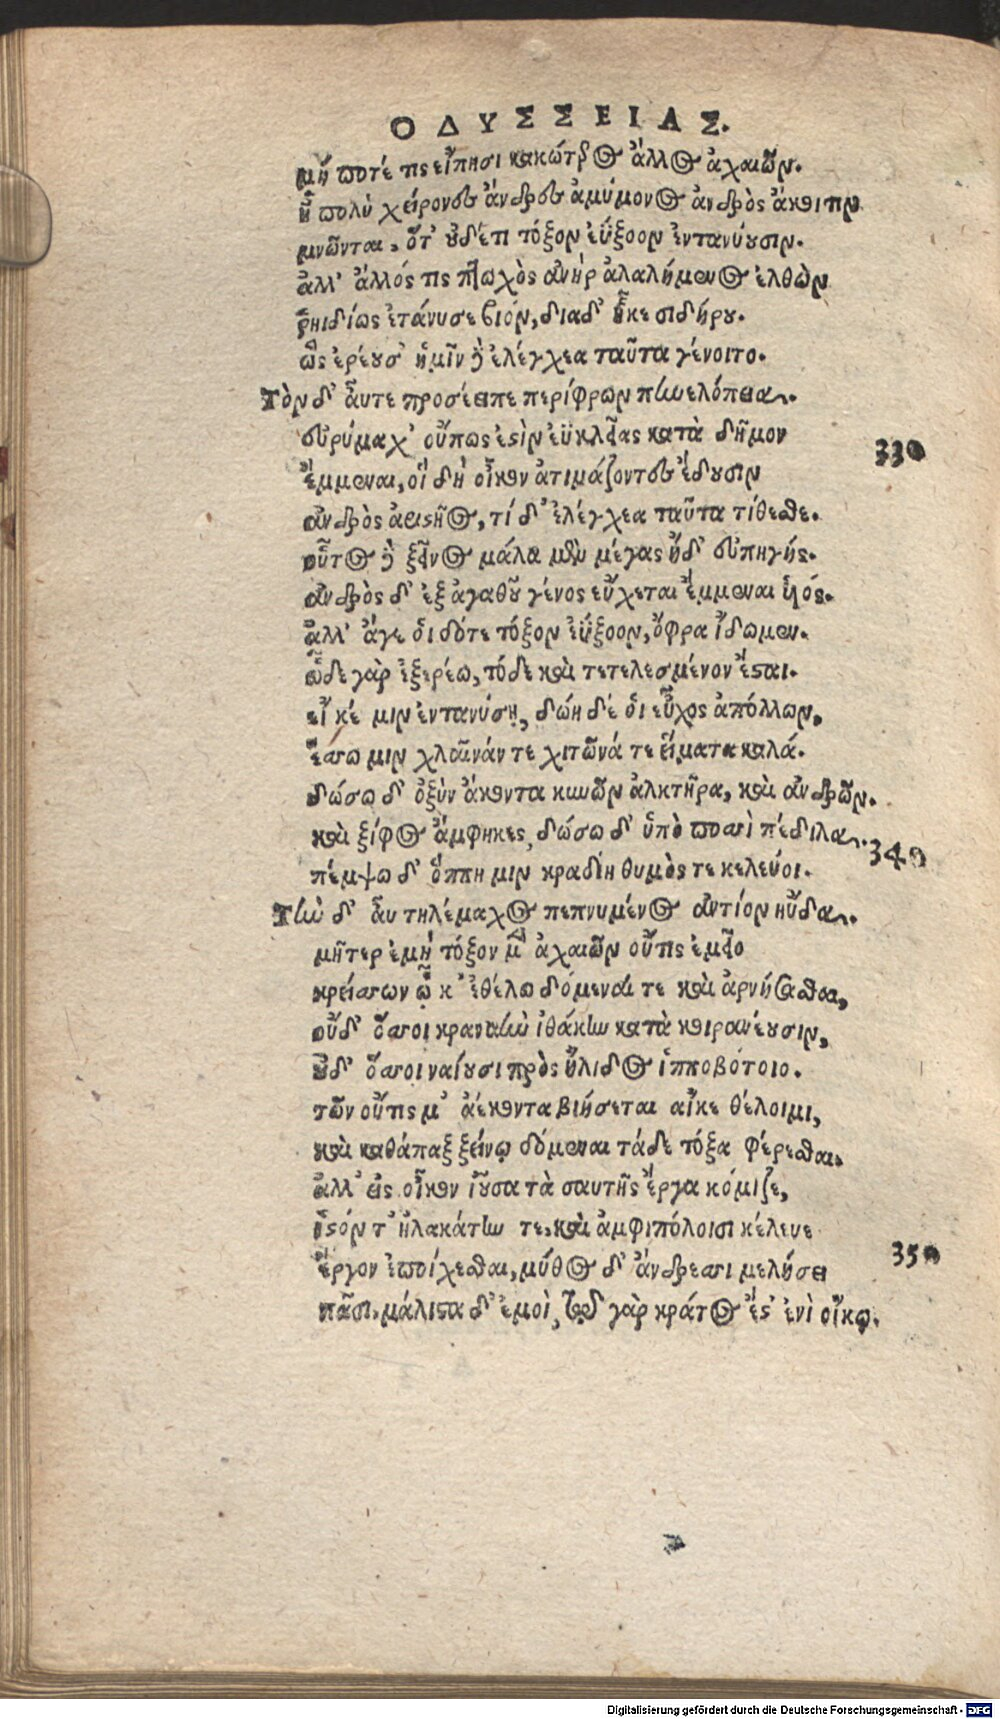 ΟΔΥΣΣΕΙΑΣ.
μή ποτέ τις εἴπησι κακώτερος ἄλλος ἀχαιῶν.
ἦ πολὺ χείρονες ἄνδρες ἀμύμονος ἀνδρὸς ἄκοιτιν
μνῶνται, ὅτ' οὐδέ τι τόξον ἐΰξοον ἐντανύουσιν.
ἀλλ' ἄλλός τις πτωχὸς ἀνὴρ ἀλαλήμενος ἐλθὼν
ῥηιδίως ἐτάνυσε βιόν, διὰ δ' ἧκε σιδήρου.
ὣς ἐρέουσ' ἡμῖν δ' ἐλέγχεα ταῦτα γένοιτο.
Τὸν δ' αὖτε προσέειπε περίφρων πηνελόπεια.
εὐρύμαχ' οὔπως ἐστὶν ἐϋκλεῖας κατὰ δῆμον
ἔμμεναι, οἳ δὴ οἶκον ἀτιμάζοντες ἔδουσιν
ἀνδρὸς ἀριστῆος, τί δ' ἐλέγχεα ταῦτα τίθεσθε.
οὗτος δ' ξεῖνος μάλα μὲν μέγας ἠδ' εὐπηγής.
ἀνδρὸς δ' ἐξ ἀγαθοῦ γένος εὔχεται ἔμμεναι ὑιός.
ἀλλ' ἄγε ὁι δότε τόξον ἐΰξοον, ὄφρα ἴδωμεν.
ὧδε γὰρ ἐξερέω, τόδε καὶ τετελεσμένον ἔσται.
εἴ κέ μιν ἐντανύσῃ, δώῃ δέ ὁι εὖχος ἀπόλλων,
ἕσσω μιν χλαῖνάν τε χιτῶνά τε εἵματα καλά.
δώσω δ' ὀξὺν ἄκοντα κυνῶν ἀλκτῆρα, καὶ ἀνδρῶν.
καὶ ξίφος ἄμφηκες, δώσω δ' ὑπὸ ποσσὶ πέδιλα.
πέμψω δ' ὅππη μιν κραδίη θυμὸς τε κελεύοι.
Τὴν δ' αὖ τηλέμαχος πεπνυμένος ἀντίον ηὔδα.
μῆτερ ἐμὴ τόξον μὲν ἀχαιῶν οὔτις ἐμεῖο
κρείσσων ᾧ κ' ἐθέλω δόμεναί τε καὶ ἀρνήσασθαι,
οὔδ' ὅσσοι κραναὴν ἰθάκην κατὰ κοιρανέουσιν,
οὐδ' ὅσσοι ναίουσι πρὸς ἤλιδος ἱπποβότοιο.
τῶν οὔτις μ' ἀέκοντα βιήσεται αἴκε θέλοιμι,
καὶ καθάπαξ ξείνῳ δόμεναι τάδε τόξα φέρεσθαι.
ἀλλ' εἰς οἶκον ἰοῦσα τὰ σαυτῆς ἔργα κόμιζε,
ἱστόν τ' ἠλακάτην τε, καὶ ἀμφιπόλοισι κέλευε
ἔργον ἐποίχεσθαι, μῦθος δ' ἄνδρεσσι μελήσει
πᾶσι, μάλιστα δ' ἐμοὶ, τοῦ γὰρ κράτος ἔστ' ἐνὶ οἴκῳ.
330
340
350
Digitalisierung gefördert durch die Deutsche Forschungsgemeinschaft - DFG